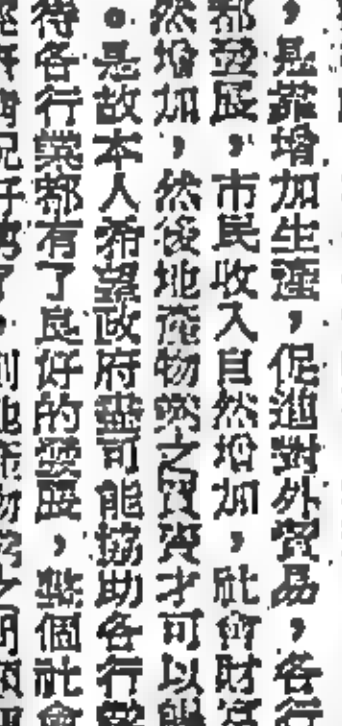 ，是靠增加生產，促進對外貿易，各行
都發展，市民收入自然增加，社會財富
然增加，然後地產物業之買賣才可以
。是故本人希望政府盡可能協助各行業
待各行業都有了良好的發展，整個社會